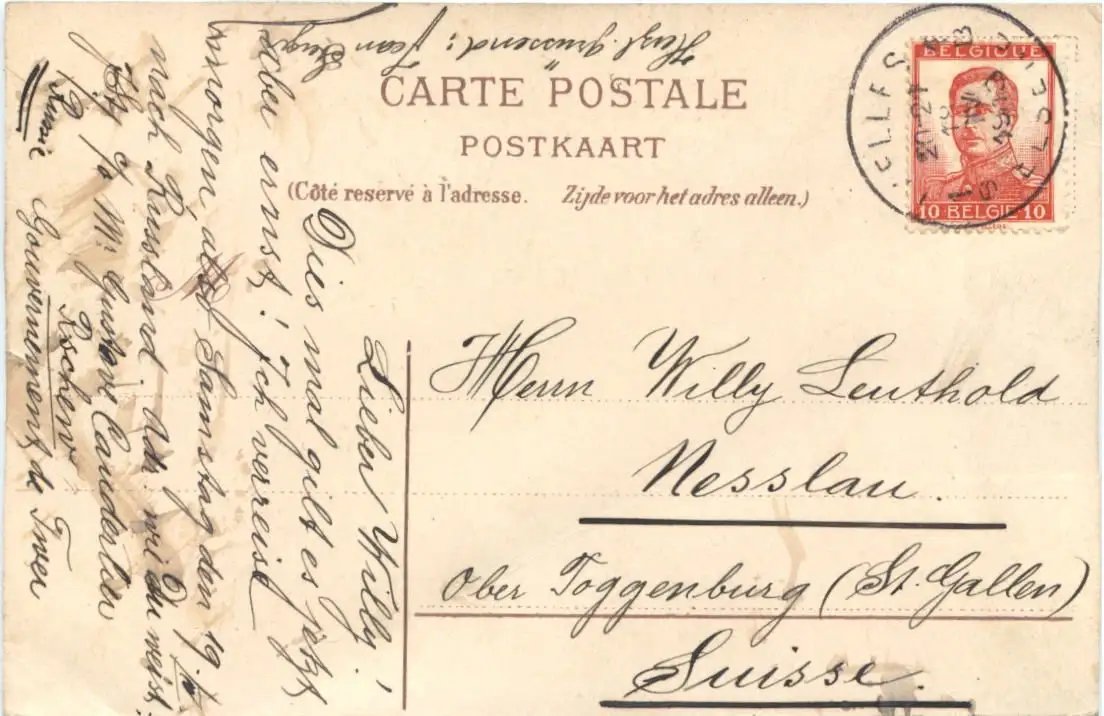 CARTE POSTALE
POSTKAART
(Côté reservé à l'adresse. Zijde voor het adres alleen.)
BELGIQUE
10 BELGIË 10
Herrn Willy Leuthold
Nesslau.
Ober Toggenburg (St. Gallen)
Suisse.
Lieber Willy!
Dies mal gilt es jetzt
aber ernst! Ich verreise
morgen Samstag den 19.
nach Russland. wie Du weist:
Mr Gustave
Rschew
Gouvernement de Twer
Russie
Herzl. grüssend: Jean